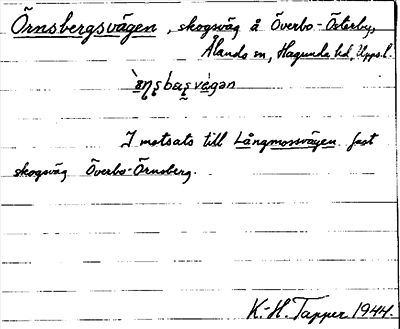 Örnsbergsvägen, skogsväg å Överbo-Österby,
Ålands sn, Hagunda hd, Upps.l.
I motsats till Långmossvägen fast
skogsväg Överbo-Örnsberg.
K.-H. Tapper 1944.